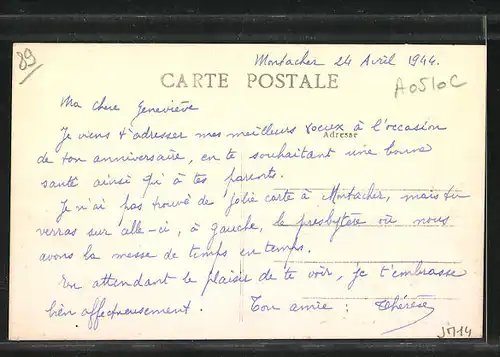 89
Montacher 24 Avril 1944.
CARTE POSTALE
A0510C
Ma chere Geneviève
Adresse
Je viens t'adresser mes meilleurs voeux à l'occasion
de ton anniversaire, en te souhaitant une bonne
santé ainsi qu'à tes parents.
Je n'ai pas trouvé de jolie carte à Montacher, mais tu
verras sur celle-ci, à gauche, le presbytère où nous
avons la messe de temps en temps.
En attendant le plaisir de te voir, je t'embrasse
bien affectueusement. Ton amie : Thérèse